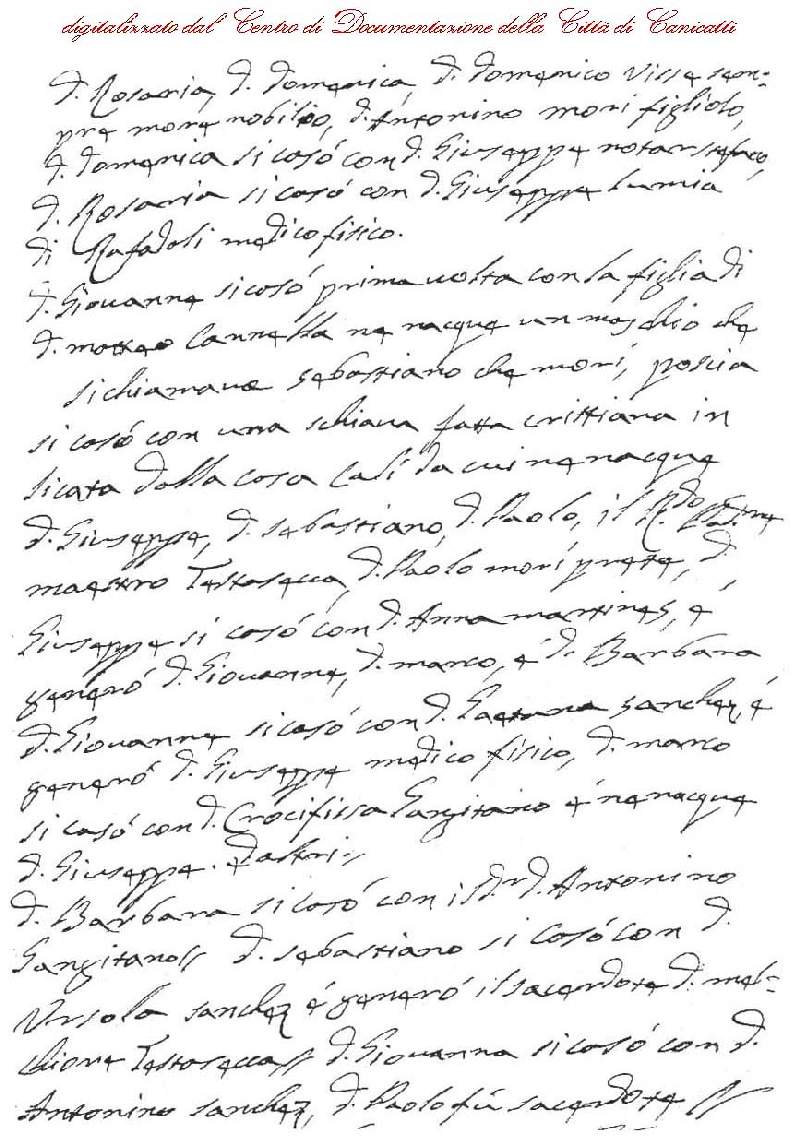 digitalizzato dal Centro di Documentazione della Città di Canicattì
d. Rosaria, d. domenica, d. domenico visse sem=
pre more nobilio, d. Antonino morì figliolo,
d. domenica si casò con d. Giuseppe notarstefano,
d. Rosaria si casò con d. Giuseppe lumia
di Rafadali medico fisico.
d. Giovanne si casò prima volta con la figlia di
d. matteo Cannella ne nacque un maschio che
si chiamava sebastiano che morì, poscia
si casò con una schiava fatta cristiana in
licata dalla casa Calì da cui ne nacque
d. Giuseppe, d. sebastiano, d. Paolo, il R.do P.dre
maestro Testasecca, d. Paolo morì prete, d.
Giuseppe si casò con d. Anna martines, é
generò d. Giovanne, d. marco, é d. Barbara
d. Giovanne si casò con d. Gaetana sanchez, é
generò d. Giuseppe medico fisico, d. marco
si casò con d. Crocifissa Gangitano é ne nacque
d. Giuseppe. ed altri //
d. Barbara si casò con il d.r d. Antonino
Gangitano // d. sebastiano si casò con d.
Ursola sanchez é generò il sacerdote d. mel=
chiore Testasecca // d. Giovanna si casò con d.
Antonino sanchez, d. Paolo fù sacerdote //